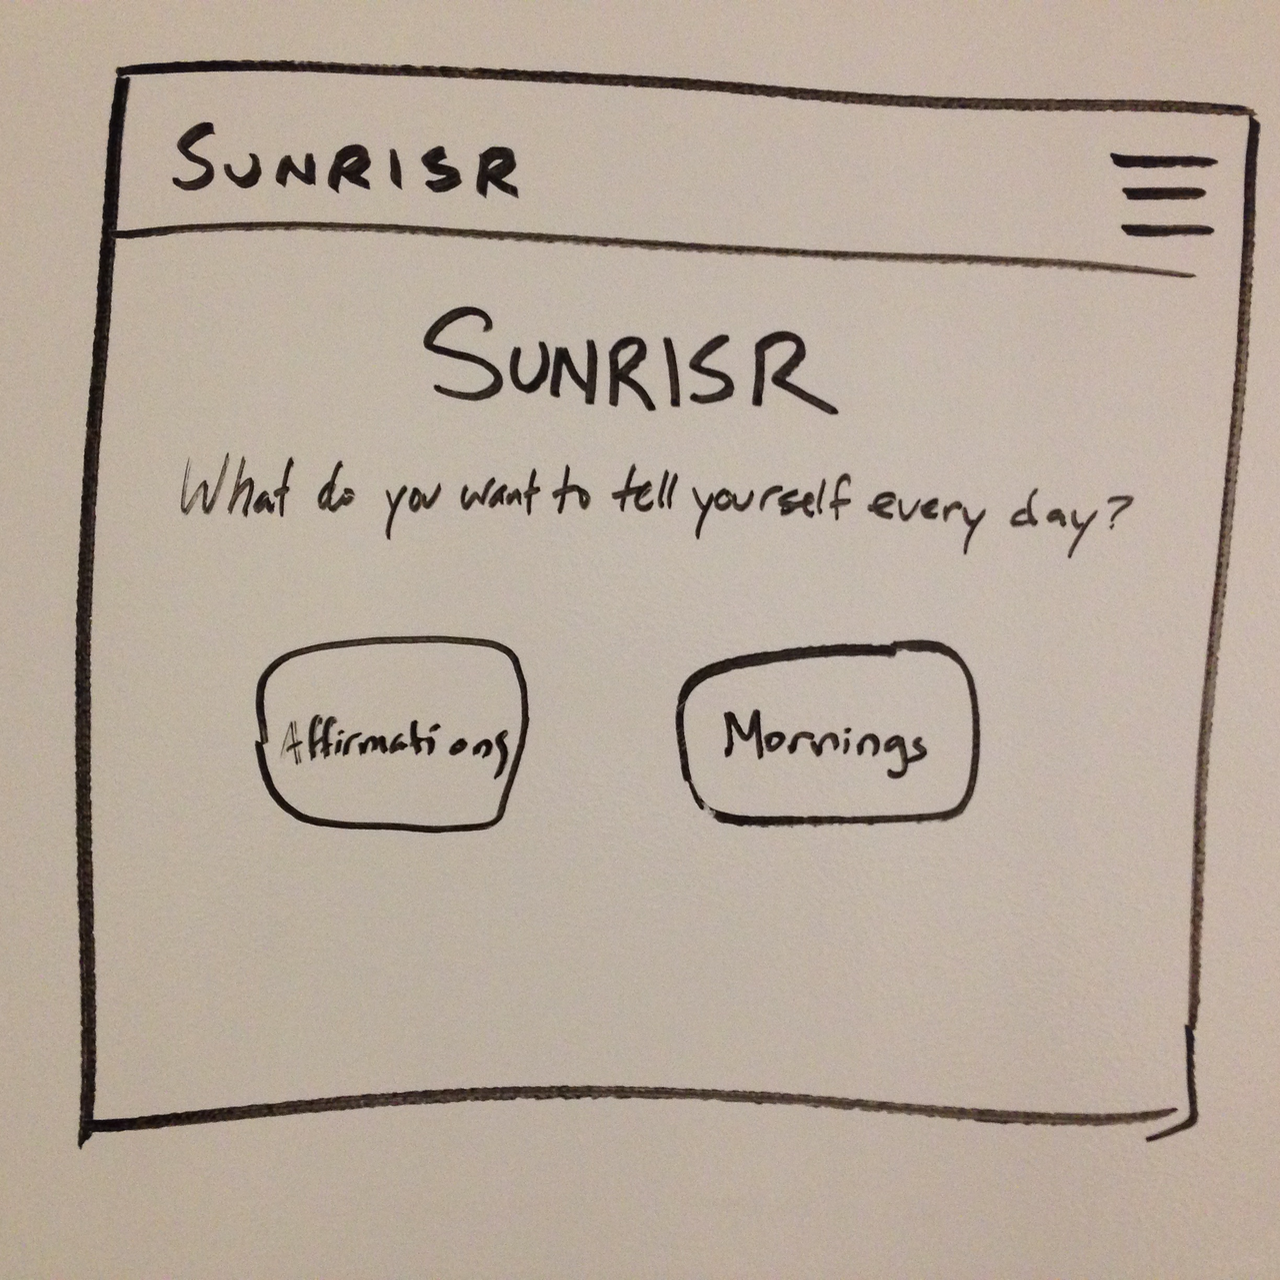 SUNRISR
SUNRISR
What do you want to tell yourself every day?
Affirmations
Mornings